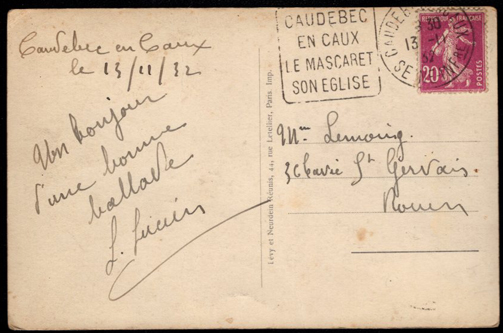 Caudebec en Caux
le 13/11/32
Un bonjour
d'une bonne
ballade
L. Lucien
CAUDEBEC
EN CAUX
LE MASCARET
SON EGLISE
CAUDEBEC
13
32
SE
REPUBLIQUE FRANÇAISE
20c
POSTES
Lévy et Neurdein Réunis, 44, rue Letellier, Paris Imp.
Mme Lemoing.
St Gervais.
Rouen